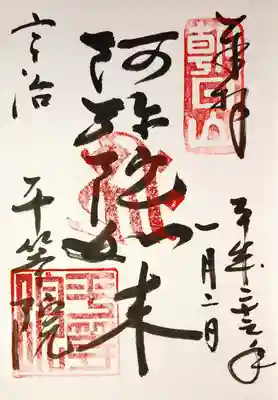 奉拝
朝日山
平成二三年
一月二日
阿弥陀如来
宇治
平等院